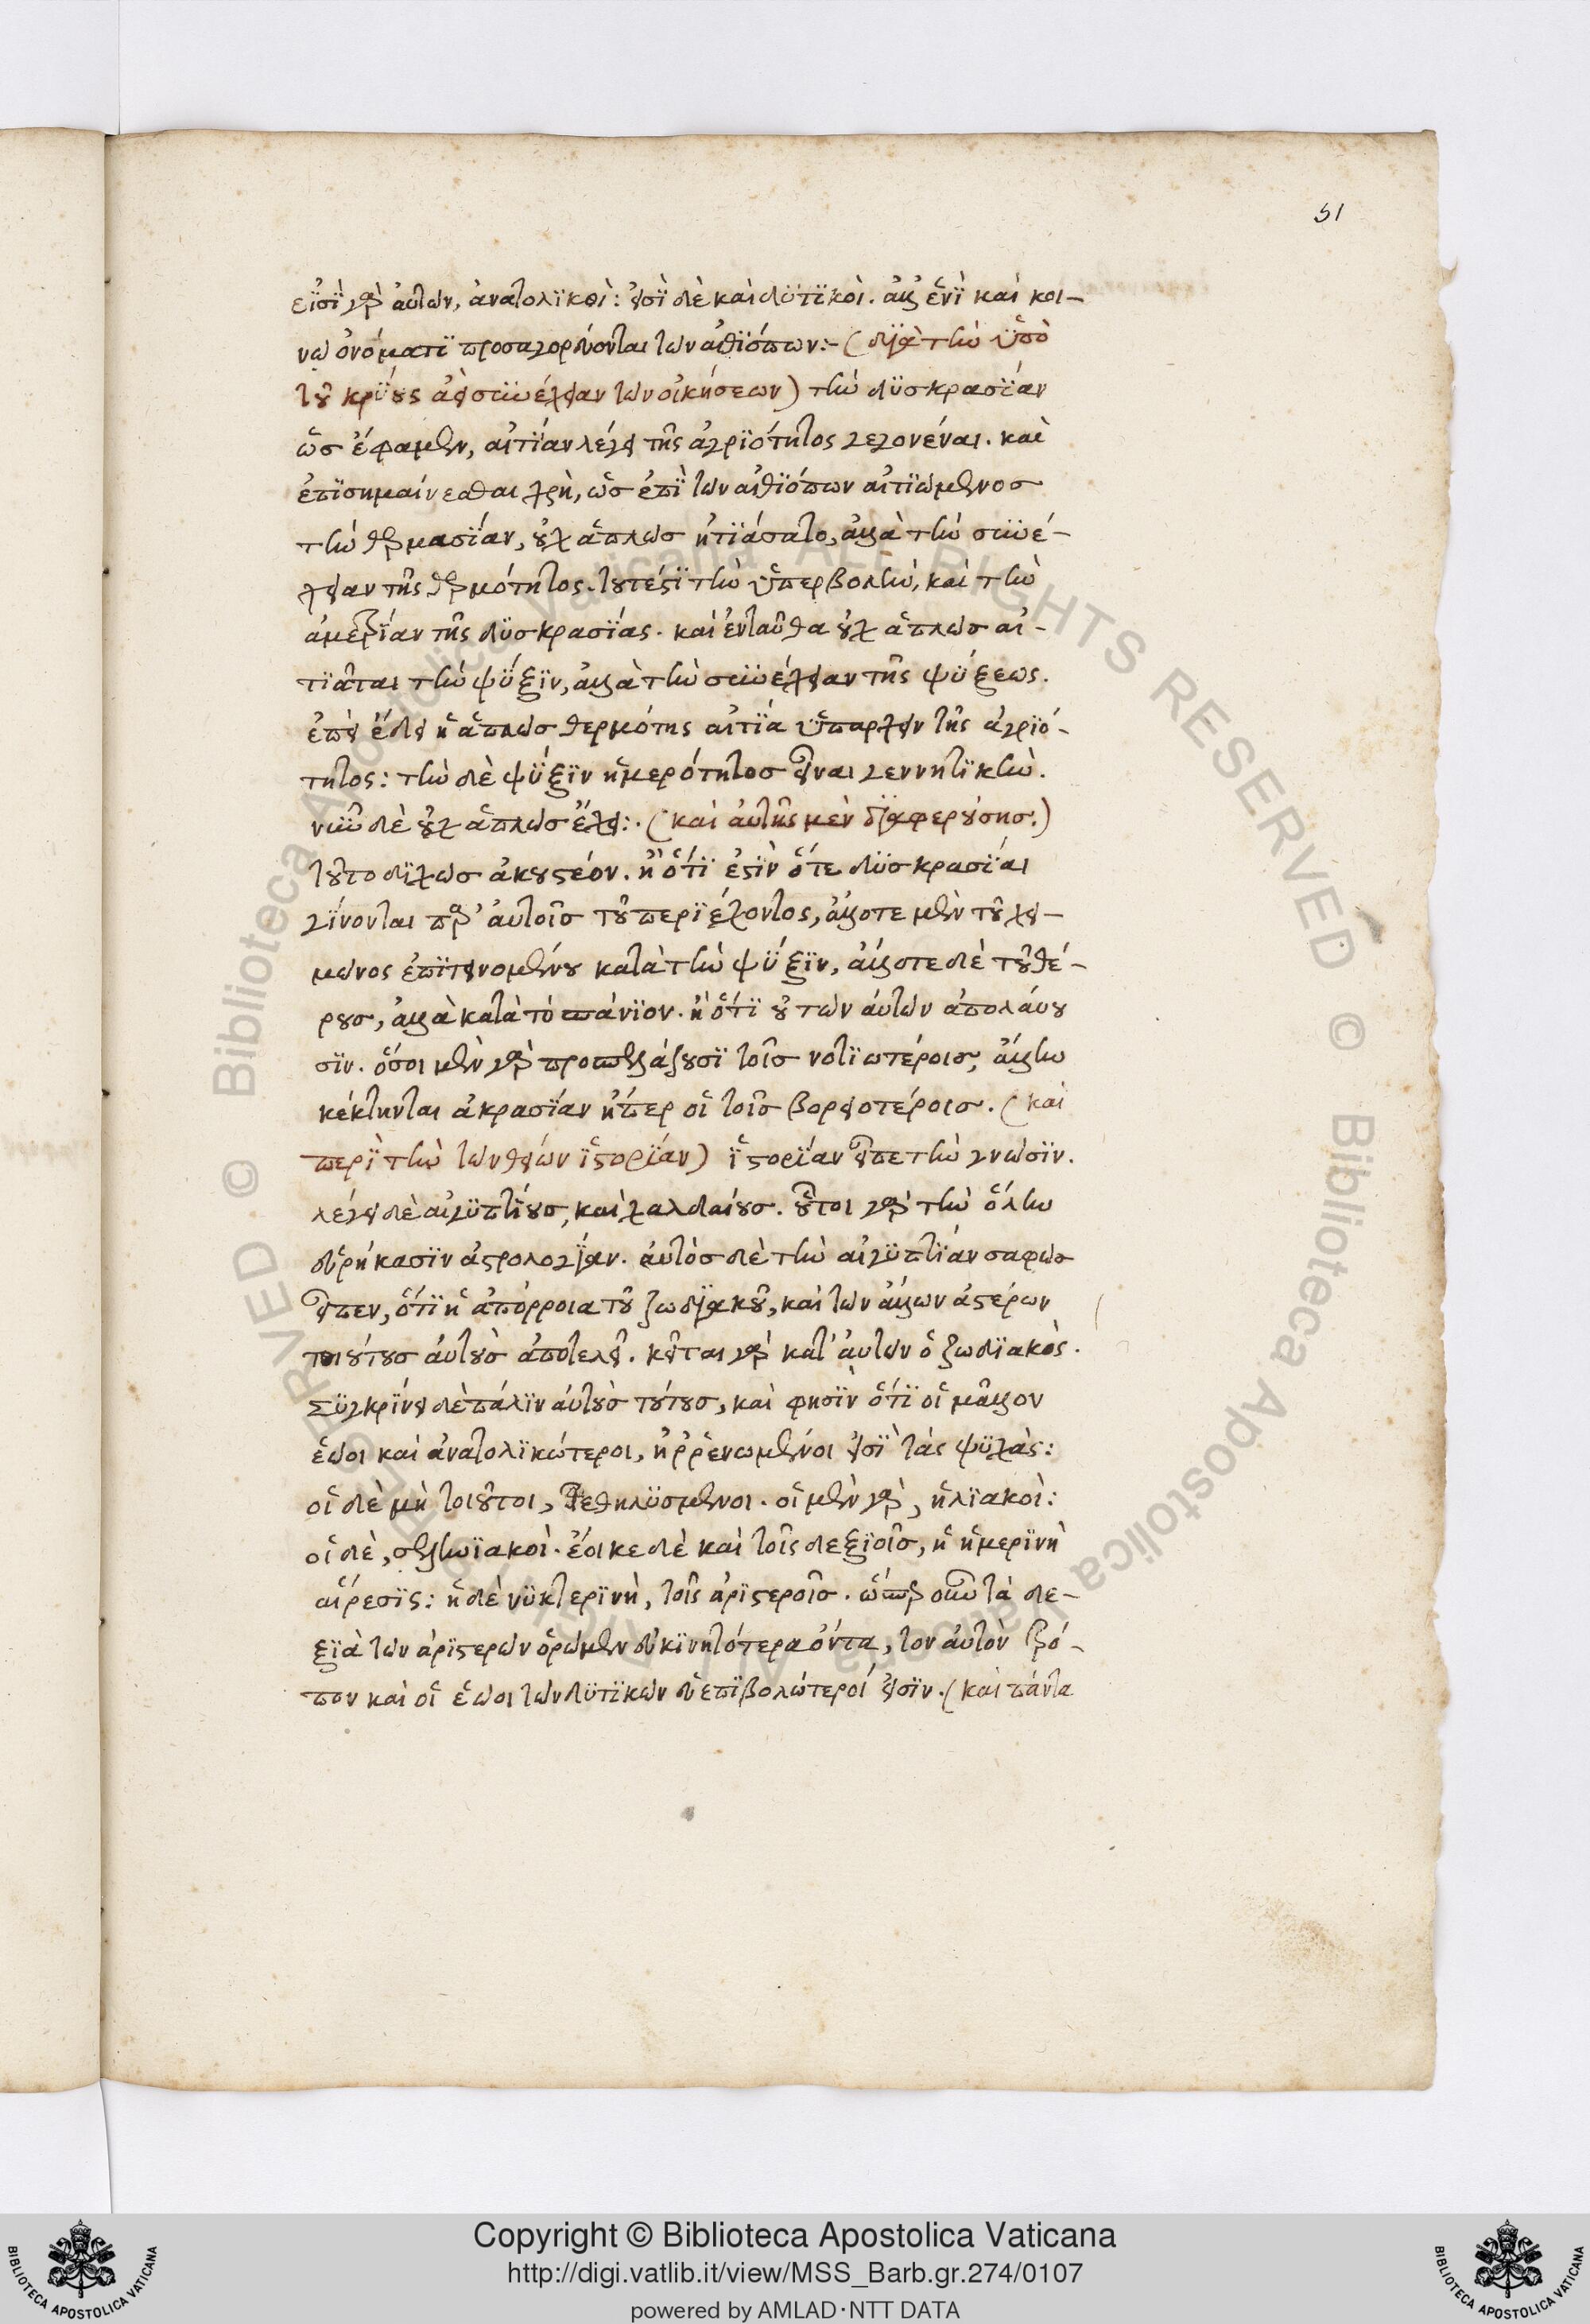 51
εἰσὶ γὰρ αὐτῶν, ἀνατολϊκοὶ: εἰσὶ δὲ καὶ δυτϊκοὶ. ἀλλ' ἑνὶ καὶ κοι-
νῶ ὀνόματι προσαγορεύονται τῶν αἰθϊόπων:- (διὰ τὴν ὑπὸ
τοῦ κρύους ἀεὶ συνέχειαν τῶν οἰκήσεων) τὴν δυσκρασίαν
ὡς ἔφαμεν, αἰτίαν λέγει τῆς ἀγριότητος γεγονέναι. καὶ
ἐπισημαίνεσθαι χρὴ, ὡς ἐπὶ τῶν αἰθιόπων αἰτιώμενος
τὴν θερμασίαν, οὐχ ἁπλῶς ἠτιάσατο, ἀλλὰ τὴν συνέ-
χειαν τῆς θερμότητος. τουτέστι τὴν ὑπερβολὴν, καὶ τὴν
ἀμετρίαν τῆς δυσκρασίας. καὶ ἐνταῦθα οὐχ ἁπλῶς αἰ-
τιᾶται τὴν ψύξιν, ἀλλὰ τὴν συνέχειαν τῆς ψύξεως.
ἐπεὶ ἔδει ἡ ἁπλῶς θερμότης αἰτία ὑπάρχειν τῆς ἀγριό-
τητος: τὴν δὲ ψύξιν ἡμερότητος εἶναι γεννητικὴν.
νῦν δὲ οὐχ ἁπλῶς ἔχει:. (καὶ αὐτῆς μὲν διαφερούσης.)
τοῦτο διχῶς ἀκουστέον. ἢ ὅτι ἐστὶν ὅτε δυσκρασίαι
γίνονται παρ' αὐτοῖς τοῦ περιέχοντος, ἄλλοτε μὲν τοῦ χει-
μῶνος ἐπιτεινομένου κατὰ τὴν ψύξιν, ἄλλοτε δὲ τοῦ θέ-
ρους, ἀλλὰ κατὰ τὸ σπάνιον. ἢ ὅτι οὐ τῶν αὐτῶν ἀπολάου
σιν. ὅσοι μὲν γὰρ προπελάζουσι τοῖς νοτιωτέροις, ἄλλην
κέκτηνται ἀκρασίαν ἤπερ οἱ τοῖς βορειοτέροις. (καὶ
περὶ τὴν τῶν θείων ἱστορίαν) ἱστορίαν εἶπε τὴν γνῶσιν.
λέγει δὲ αἰγυπτίους, καὶ χαλδαίους. οὗτοι γὰρ τὴν ὅλην
εὑρήκασιν ἀστρολογίαν. αὐτὸς δὲ τὴν αἰγυπτίαν σαφῶς
εἶπεν, ὅτι ἡ ἀπόρροια τοῦ ζωδιακοῦ, καὶ τῶν ἄλλων ἀστέρων
τοιούτους αὐτοὺς ἀποτελεῖ. κεῖται γὰρ κατ' αὐτῶν ὁ ζωδιακὸς.
Συγκρίνει δὲ πάλιν αὐτοὺς τούτους, καὶ φησὶν ὅτι οἱ μᾶλλον
ἑῶοι καὶ ἀνατολικώτεροι, ἠρρενωμένοι εἰσὶ τὰς ψυχὰς:
οἱ δὲ μὴ τοιοῦτοι, τεθηλυσμένοι. οἱ μὲν γὰρ, ἡλιακοὶ:
οἱ δὲ, σεληνιακοὶ. ἔοικε δὲ καὶ τοῖς δεξιοῖς, ἡ ἡμερινὴ
αἵρεσις: ἡ δὲ νυκτερινὴ, τοῖς ἀριστεροῖς. ὥσπερ οὖν τὰ δε-
ξιὰ τῶν ἀριστερῶν ὁρῶμεν εὐκινητότερα ὄντα, τὸν αὐτὸν τρό-
πον καὶ οἱ ἑῶοι τῶν δυτικῶν εὐεπιβολώτεροί εἰσιν. (καὶ πάντα
© Biblioteca Apostolica Vaticana ALL RIGHTS RESERVED
© Biblioteca Apostolica Vaticana ALL RIGHTS RESERVED
BIBLIOTECA APOSTOLICA VATICANA
Copyright © Biblioteca Apostolica Vaticana
http://digi.vatlib.it/view/MSS_Barb.gr.274/0107
powered by AMLAD·NTT DATA
BIBLIOTECA APOSTOLICA VATICANA